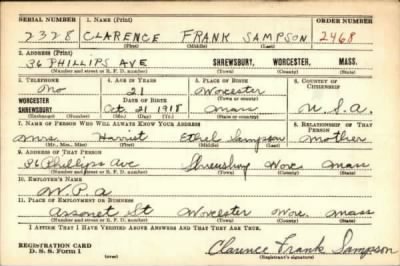 SERIAL NUMBER 1. NAME (Print) ORDER NUMBER
2328 CLARENCE FRANK SAMPSON 2468
(First) (Middle) (Last)
2. ADDRESS (Print)
36 PHILLIPS AVE SHREWSBURY, WORCESTER, MASS.
(Number and street or R. F. D. number) (Town) (County) (State)
3. TELEPHONE 4. AGE IN YEARS 5. PLACE OF BIRTH 6. COUNTRY OF CITIZENSHIP
No 21 Worcester
WORCESTER DATE OF BIRTH (Town or county)
SHREWSBURY Oct 21 1918 Mass U.S.A.
(Exchange) (Number) (Mo.) (Day) (Yr.) (State or country)
7. NAME OF PERSON WHO WILL ALWAYS KNOW YOUR ADDRESS 8. RELATIONSHIP OF THAT PERSON
Mrs. Harriet Ethel Sampson Mother
(Mr., Mrs., Miss) (First) (Middle) (Last)
9. ADDRESS OF THAT PERSON
36 Phillips Ave Shrewsbury Wor. Mass
(Number and street or R. F. D. number) (Town) (County) (State)
10. EMPLOYER'S NAME
W.P.A
11. PLACE OF EMPLOYMENT OR BUSINESS
Assonet St Worcester Wor. Mass
(Number and street or R. F. D. number) (Town) (County) (State)
I AFFIRM THAT I HAVE VERIFIED ABOVE ANSWERS AND THAT THEY ARE TRUE.
REGISTRATION CARD
D. S. S. Form 1 (over) Clarence Frank Sampson
(Registrant's signature)